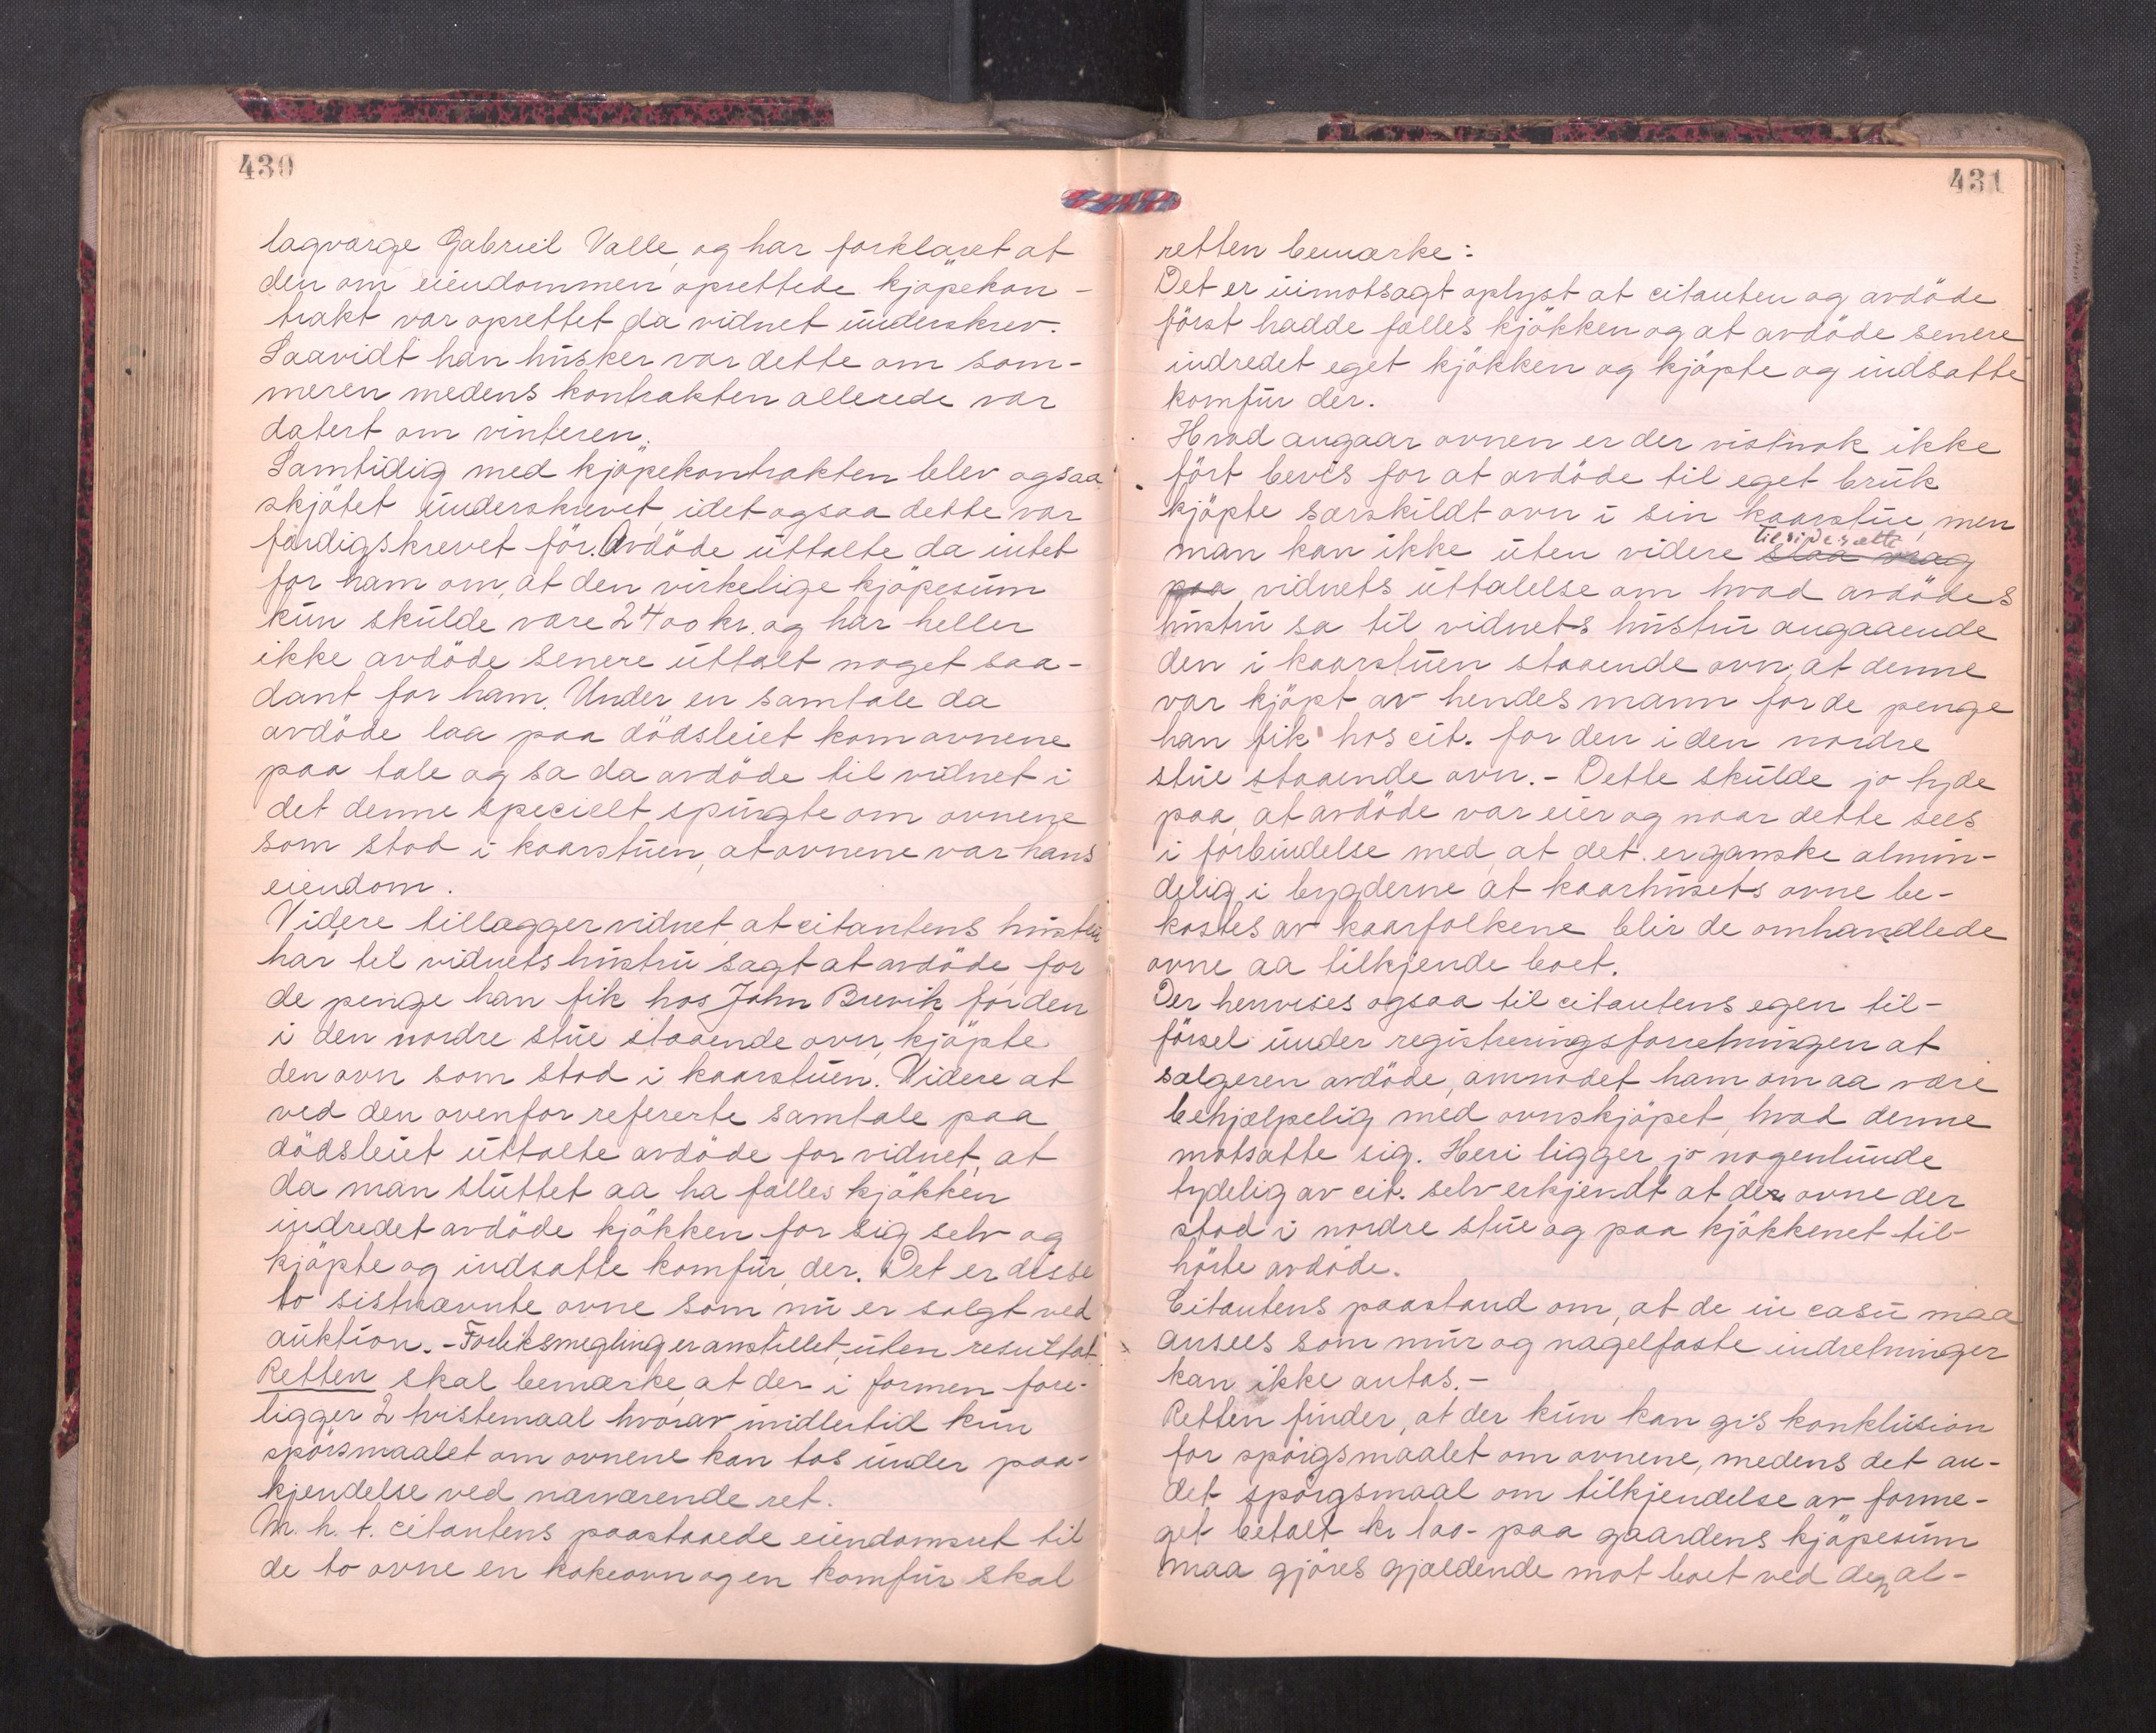 430
lagværge Gabriel Valle, og har forklaret at
den om eiendommen oprettede kjøpekon-
trakt var oprettet da vidnet underskrev.
Saavidt han husker var dette om som-
meren medens kontrakten allerede var
datert om vinteren.
Samtidig med kjøpekontrakten blev ogsaa
skjøtet underskrevet, idet ogsaa dette var
færdigskrevet før. Avdøde uttalte da intet
for ham om, at den virkelige kjøpesum
kun skulde være 2400 kr. og har heller
ikke avdøde senere uttalt noget saa-
dant for ham. Under en samtale da
avdøde laa paa dødsleiet kom ovnene
paa tale og sa da avdøde til vidnet i
det denne specielt spurgte om ovnene
som stod i kaarstuen, at ovnene var hans
eiendom.
Videre tillægger vidnet at citantens hustru
har til vidnets hustru sagt at avdøde for
de penge han fik hos John Brevik for den
i den nordre stue staaende ovn, kjøpte
den ovn som stod i kaarstuen. Videre at
ved den ovenfor refererte samtale paa
dødsleiet uttalte avdøde for vidnet, at
da man sluttet aa ha fælles kjøkken
indredet avdøde kjøkken for sig selv og
kjøpte og indsatte komfur, der. Det er disse
to sistnævnte ovne som nu er solgt ved
auktion. - Forliksmegling er anstillet, uten resultat.
Retten skal bemærke, at der i formen fore-
ligger 2 tvistemaal hvorav imidlertid kun
spørsmaalet om ovnene kan tas under paa-
kjendelse ved nærværende ret.
M. h. t. citantens paastaaede eiendomsret til
de to ovne en kokeovn og en komfur skal
431
retten bemærke:
Det er uimotsagt oplyst at citanten og avdøde
først hadde fælles kjøkken og at avdøde senere
indredet eget kjøkken og kjøpte og indsatte
komfur der.
Hvad angaar ovnen er der vistnok ikke
ført bevis for at avdøde til eget bruk
kjøpte særskildt ovn i sin kaarstue, men
tilsidesætte
man kan ikke uten videre slaa vrag
paa vidnets uttalelse om hvad avdødes
hustru sa til vidnets hustru angaaende
den i kaarstuen staaende ovn, at denne
var kjøpt av hendes mann for de penge
han fik hos cit. for den i den nordre
stue staaende ovn. - Dette skulde jo tyde
paa, at avdøde var eier og naar dette sees
i forbindelse med, at det er ganske almin-
delig i bygderne at kaarhusets ovne be-
kostes av kaarfolkene blir de omhandlede
ovne aa tilkjende boet.
Der henvises ogsaa til citantens egen til-
førsel under registreringsforretningen at
sælgeren avdøde, anmodet ham om aa være
behjælpelig med ovnskjøpet, hvad denne
motsatte sig. Heri ligger jo nogenlunde
tydelig av cit. selv erkjendt at de ovne der
stod i nordre stue og paa kjøkkenet til-
hørte avdøde.
Citantens paastand om, at de in casu maa
ansees som mur og nagelfaste indretninger
kan ikke antas. -
Retten finder, at der kun kan gis konklusion
for spørgsmaalet om ovnene, medens det an-
det spørgsmaal om tilkjendelse av forme-
get betalt kr 100- paa gaardens kjøpesum
maa gjøres gjældende mot boet ved den al-